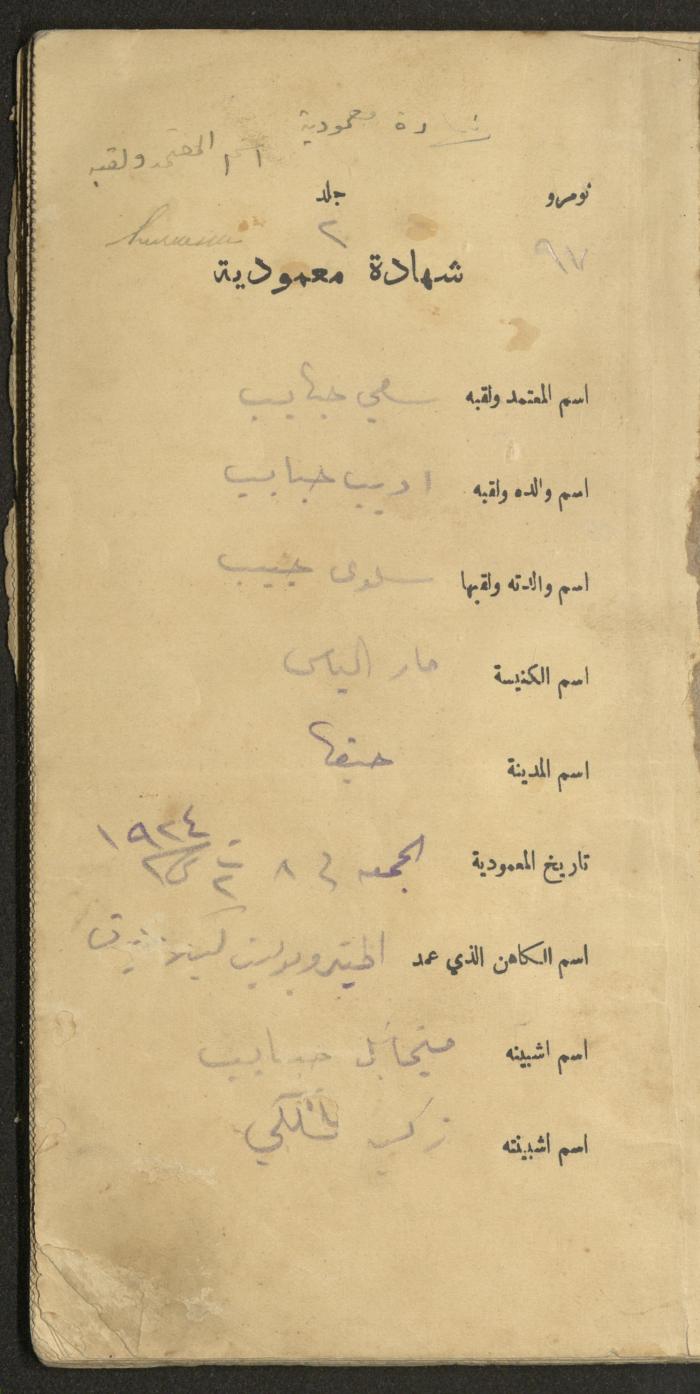 شهادة معمودية
اسم المعتمد ولقبه
نومرو جلد
٩٧ ٢
شهادة معمودية
اسم المعتمد ولقبه سهي حبايب
اسم والده ولقبه اديب حبايب
اسم والدته ولقبها سلوى حبيب
اسم الكنيسة مار الياس
اسم المدينة حيفا
تاريخ المعمودية الجمعه في ٨ ت٢ سنة ١٩٢٤
اسم الكاهن الذي عمد المتروبوليت
اسم اشبينه ميخائيل حبايب
اسم اشبينته